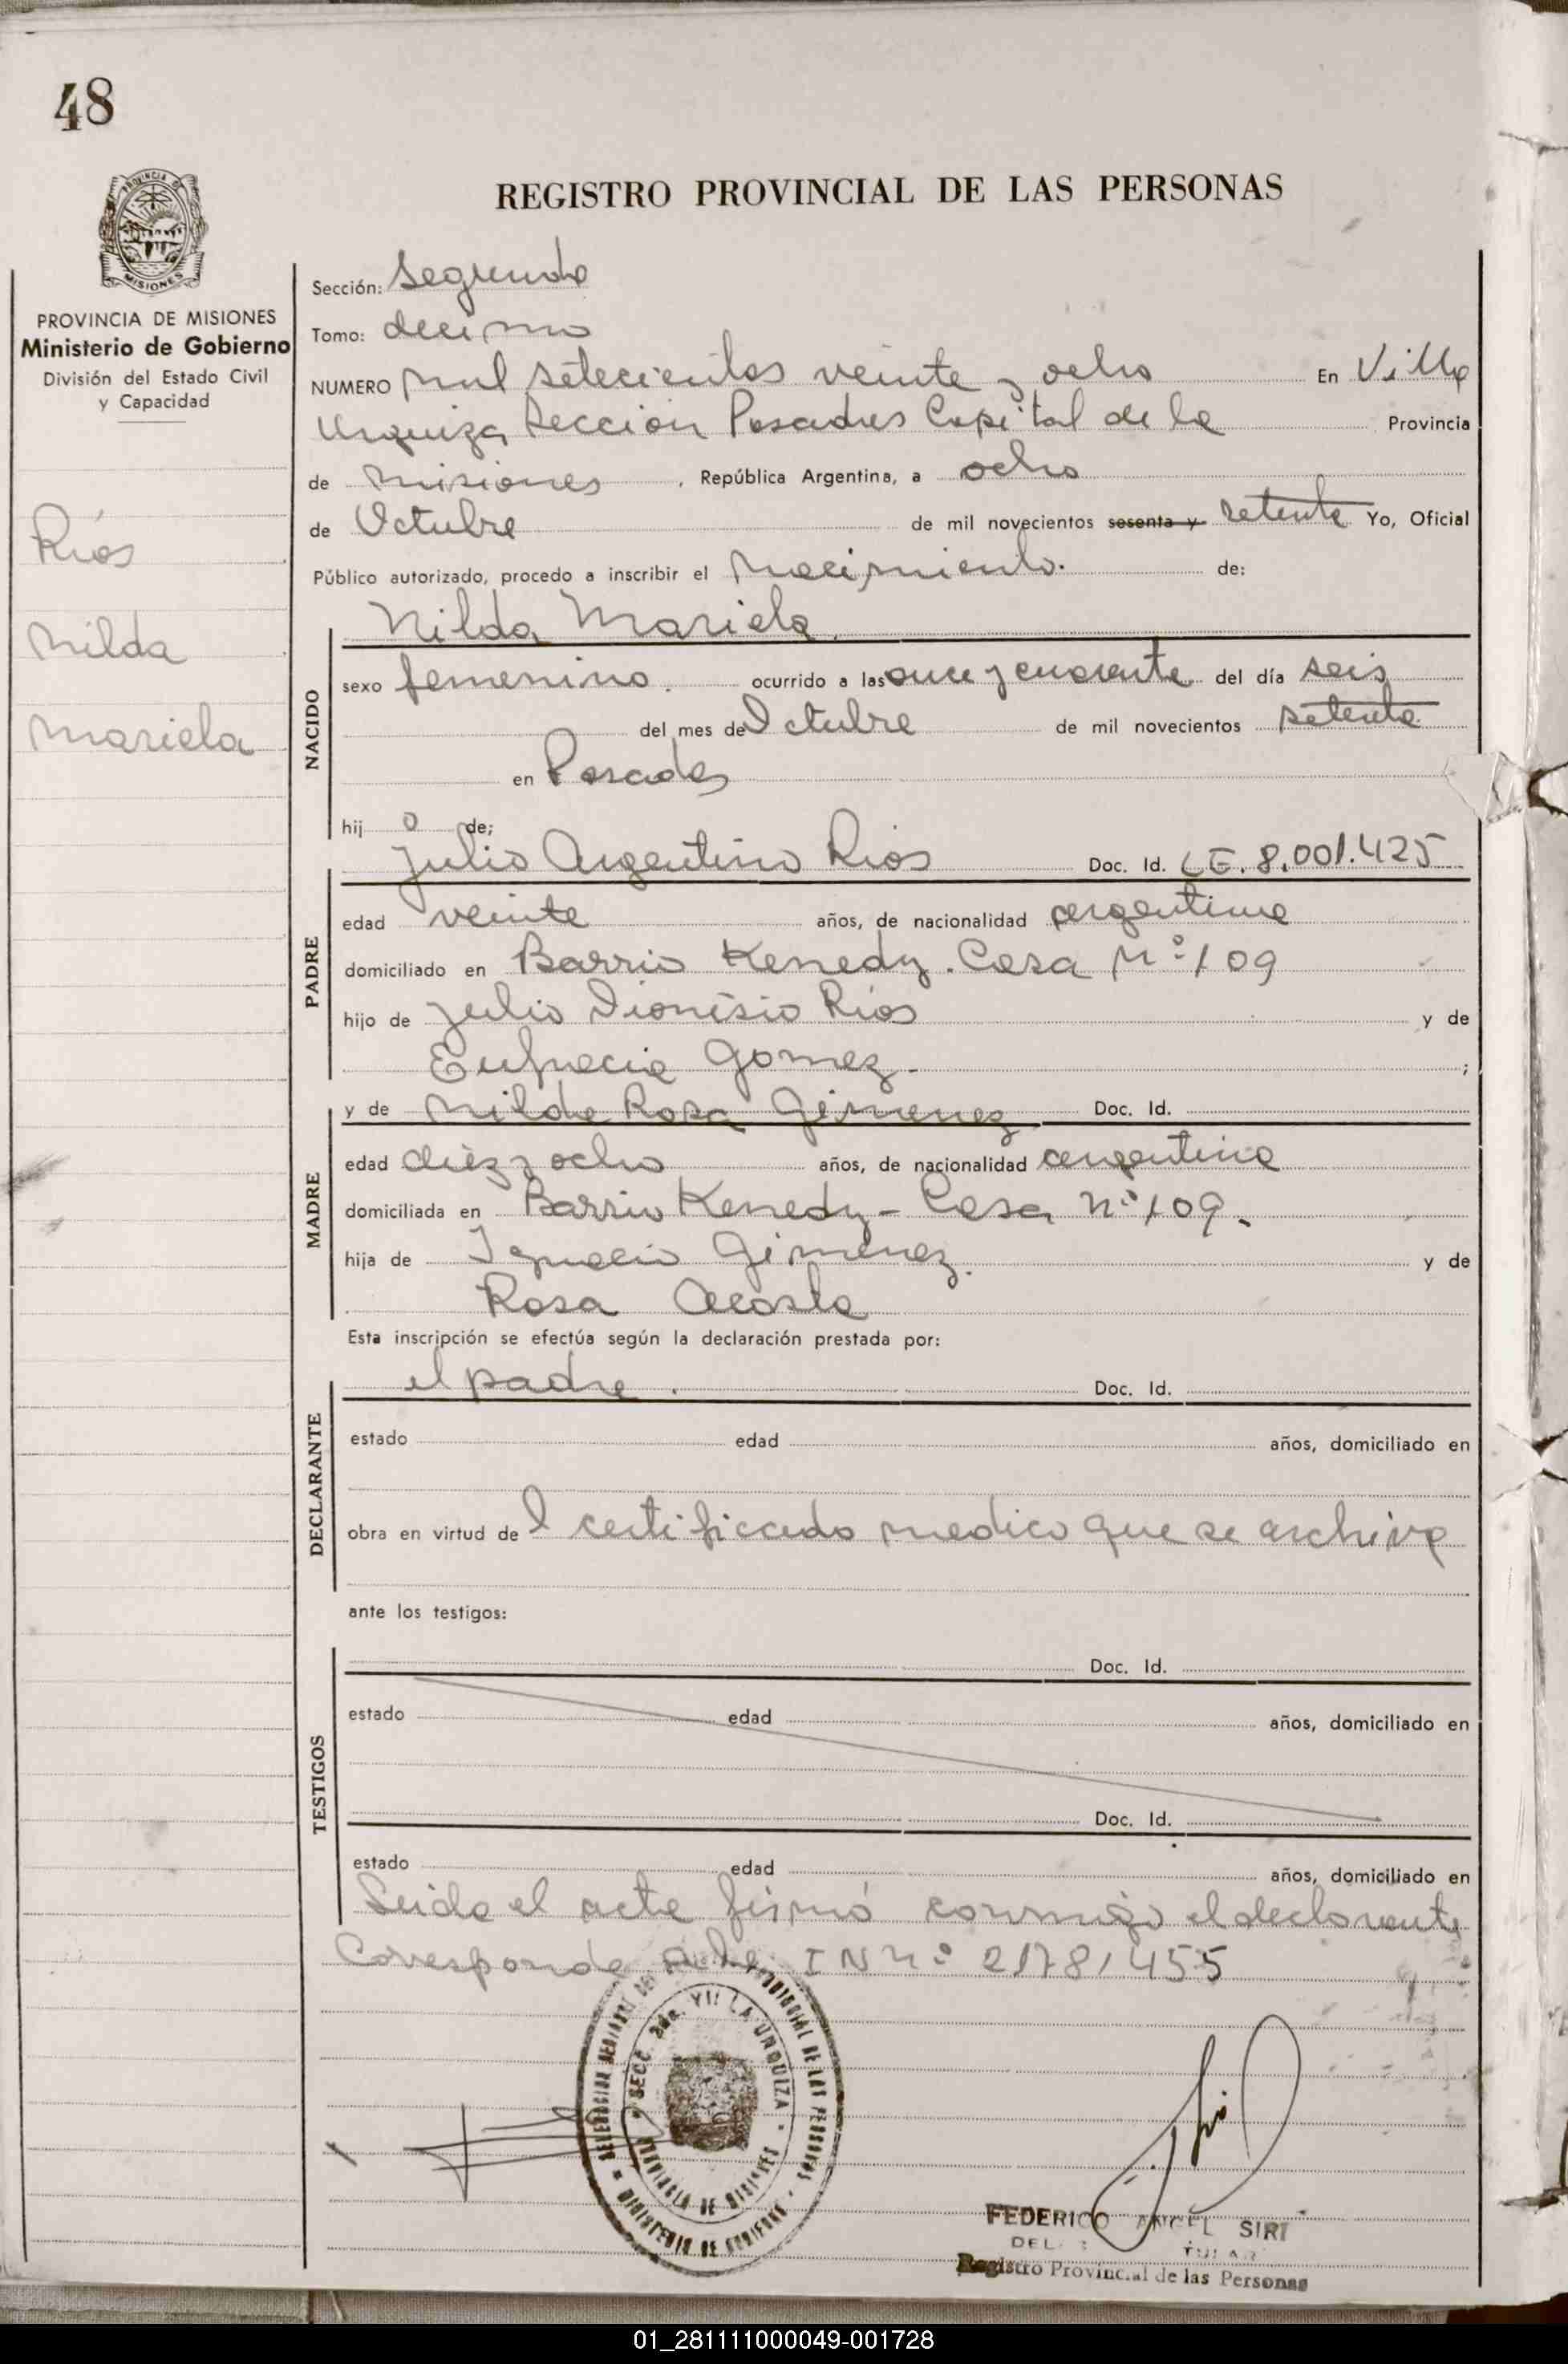 48
REGISTRO PROVINCIAL DE LAS PERSONAS
PROVINCIA DE
MISIONES
PROVINCIA DE MISIONES
Ministerio de Gobierno
División del Estado Civil
y Capacidad
Ríos
Nilda
Mariela
Sección: Segunda
Tomo: decimo
NUMERO mil setecientos veinte y ocho En Villa
Urquiza Seccion Posadas Capital de la Provincia
de Misiones , República Argentina, a ocho
de Octubre de mil novecientos sesenta y setenta Yo, Oficial
Público autorizado, procedo a inscribir el nacimiento. de:
NACIDO
Nilda Mariela
sexo femenino. ocurrido a las once y cuarenta del día seis
del mes de Octubre de mil novecientos setenta
en Posadas
hij a de;
PADRE
Julio Argentino Rios Doc. Id. LE. 8.001.425
edad veinte años, de nacionalidad argentina
domiciliado en Barrio Kenedy. Casa Nº 109
hijo de Julio Dionisio Rios y de
Eufracia Gomez. ;
MADRE
y de Nilda Rosa Gimenez Doc. Id.
edad diez y ocho años, de nacionalidad argentina
domiciliada en Barrio Kenedy - Casa Nº 109.
hija de Ignacio Gimenez. y de
Rosa Acosta
Esta inscripción se efectúa según la declaración prestada por:
DECLARANTE
el padre. Doc. Id.
estado edad años, domiciliado en
obra en virtud de l certificado medico que se archiva
ante los testigos:
TESTIGOS
Doc. Id.
estado edad años, domiciliado en
Doc. Id.
estado edad años, domiciliado en
Leida el acta firmó conmigo el declarante
Corresponde I N Nº 21781455
PROVINCIAL DE LAS PERSONAS
MINISTERIO DE GOBIERNO
SECC. 2da. VILLA URQUIZA
PROVINCIA DE MISIONES
FEDERICO ANGEL SIRI
Registro Provincial de las Personas
01_281111000049-001728